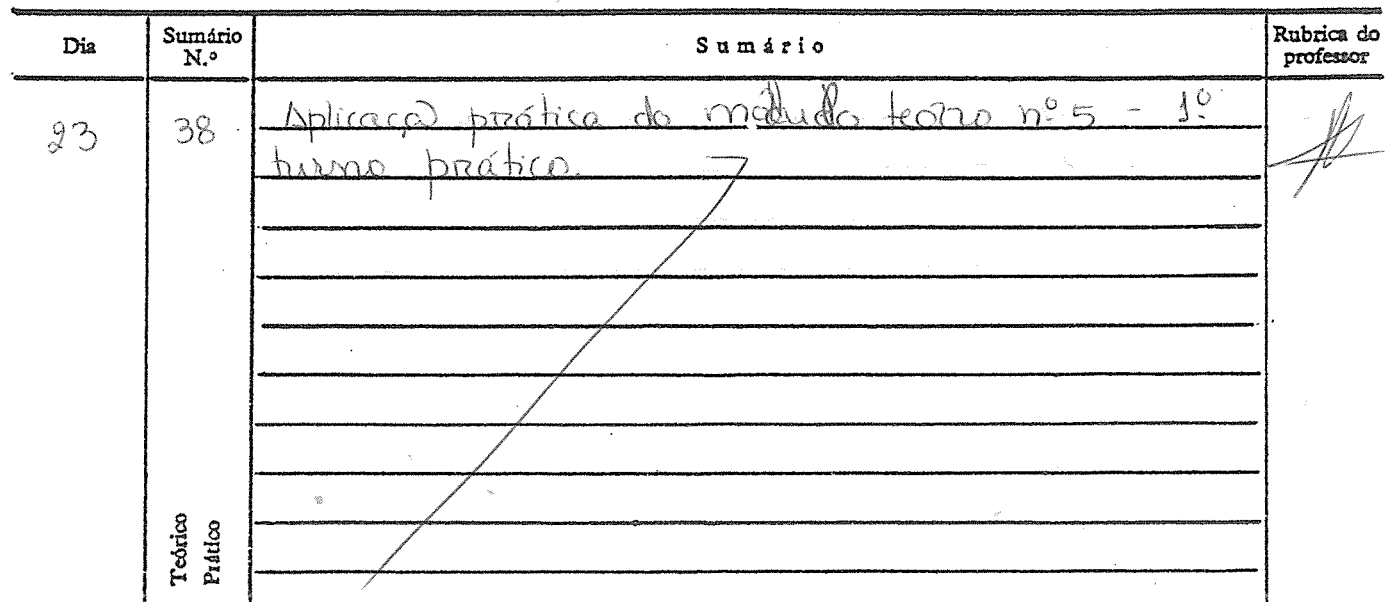 Dia Sumário N.º Sumário Rubrica do professor
23 38 Aplicaçaõ prática do módulo teórico nº 5 - 1º
turno prático.
Teórico
Prático